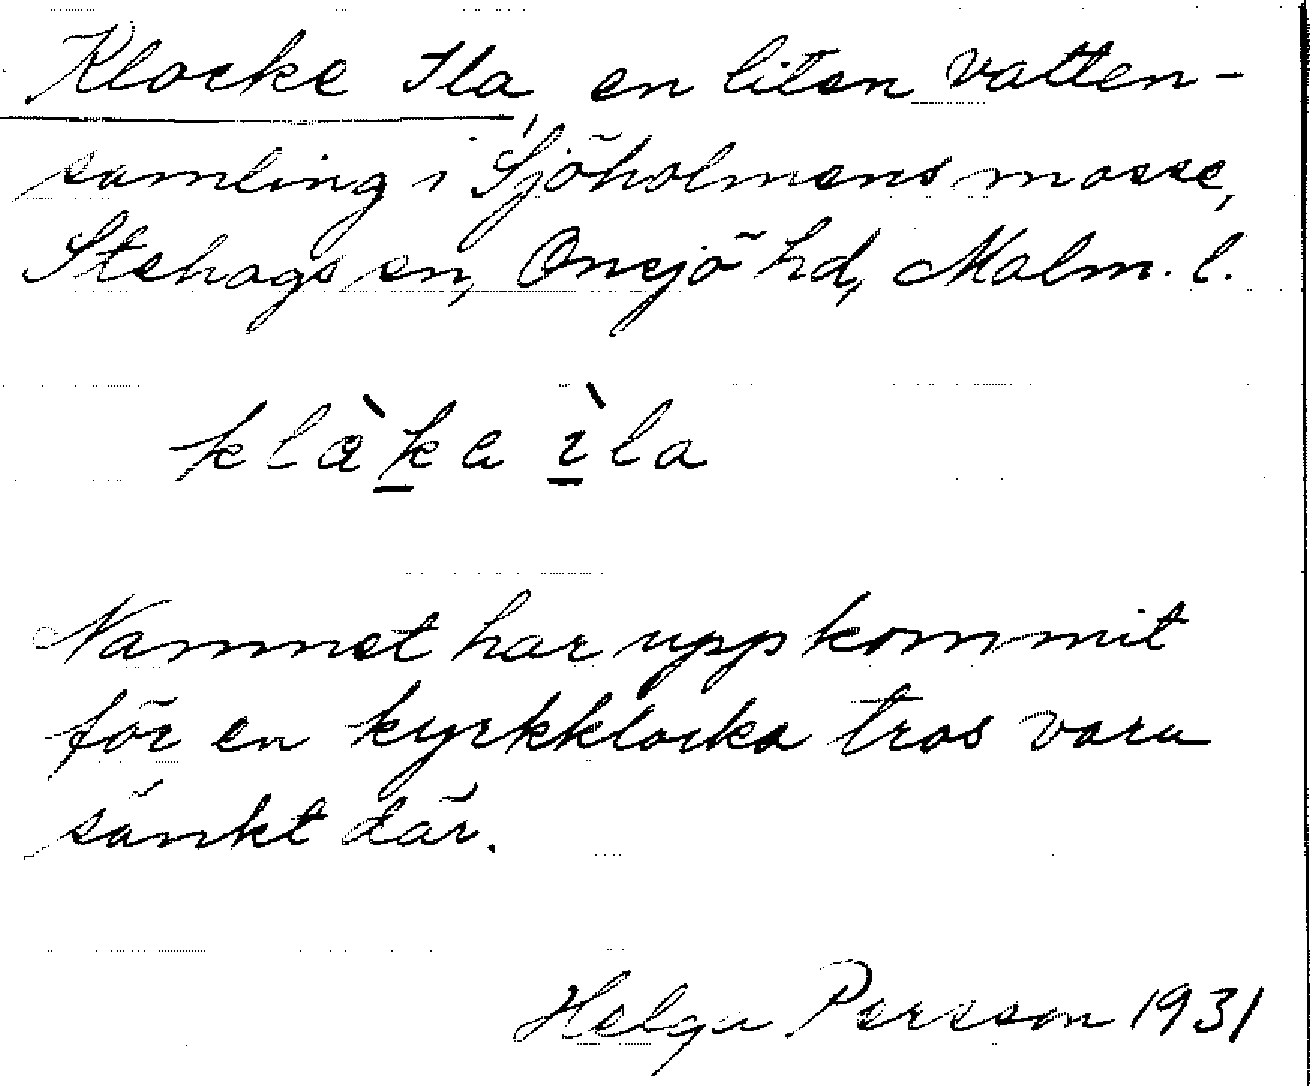 Klocke Ila, en liten vatten-
samling i Sjöholmens mosse,
Stehags sn, Onsjö hd, Malm. l.
klàka ìla
Namnet har uppkommit
för en kyrkklocka tros vara
sänkt där.
Helga Persson 1931